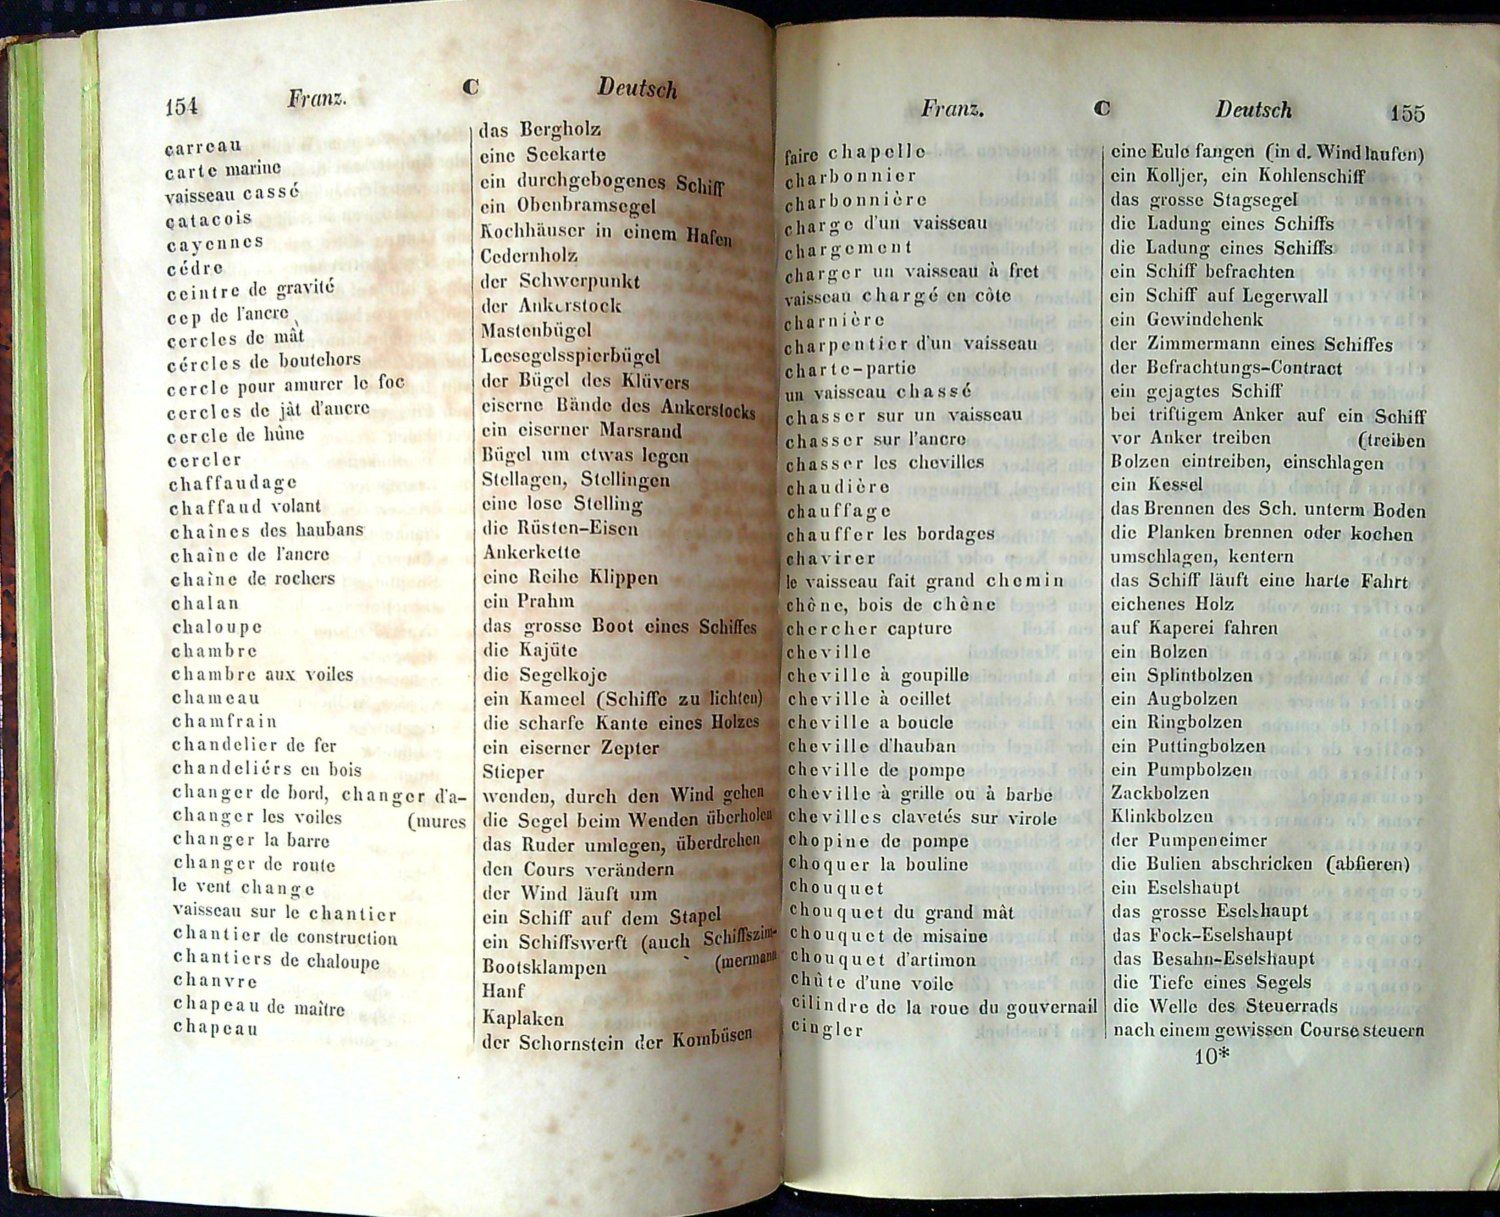 154 Franz. C Deutsch
carreau das Bergholz
carte marine eine Seekarte
vaisseau cassé ein durchgebogenes Schiff
catacois ein Obenbramsegel
cayennes Kochhäuser in einem Hafen
cédre Cedernholz
ceintre de gravité der Schwerpunkt
cep de l'ancre der Ankerstock
cercles de mât Mastenbügel
cércles de boutehors Leesegelsspierbügel
cercle pour amurer le foc der Bügel des Klüvers
cercles de jàt d'ancre eiserne Bände des Ankerstocks
cercle de hûne ein eiserner Marsrand
cercler Bügel um etwas legen
chaffaudage Stellagen, Stellingen
chaffaud volant eine lose Stelling
chaînes des haubans die Rüsten-Eisen
chaîne de l'ancre Ankerkette
chaîne de rochers eine Reihe Klippen
chalan ein Prahm
chaloupe das grosse Boot eines Schiffes
chambre die Kajüte
chambre aux voiles die Segelkoje
chameau ein Kameel (Schiffe zu lichten)
chamfrain die scharfe Kante eines Holzes
chandelier de fer ein eiserner Zepter
chandeliérs en bois Stieper
changer de bord, changer d'a- wenden, durch den Wind gehen
changer les voiles (mures die Segel beim Wenden überholen
changer la barre das Ruder umlegen, überdrehen
changer de route den Cours verändern
le vent change der Wind läuft um
vaisseau sur le chantier ein Schiff auf dem Stapel
chantier de construction ein Schiffswerft (auch Schiffszim-
chantiers de chaloupe Bootsklampen (mermann
chanvre Hanf
chapeau de maître Kaplaken
chapeau der Schornstein der Kombüsen
Franz. C Deutsch 155
faire chapelle eine Eule fangen (in d. Wind laufen)
charbonnier ein Kolljer, ein Kohlenschiff
charbonnière das grosse Stagsegel
charge d'un vaisseau die Ladung eines Schiffs
chargement die Ladung eines Schiffs
charger un vaisseau à fret ein Schiff befrachten
vaisseau chargé en côte ein Schiff auf Legerwall
charnière ein Gewindehenk
charpentier d'un vaisseau der Zimmermann eines Schiffes
charte-partie der Befrachtungs-Contract
un vaisseau chassé ein gejagtes Schiff
chasser sur un vaisseau bei triftigem Anker auf ein Schiff
chasser sur l'ancre vor Anker treiben (treiben
chasser les chevilles Bolzen eintreiben, einschlagen
chaudière ein Kessel
chauffage das Brennen des Sch. unterm Boden
chauffer les bordages die Planken brennen oder kochen
chavirer umschlagen, kentern
le vaisseau fait grand chemin das Schiff läuft eine harte Fahrt
chêne, bois de chêne eichenes Holz
chercher capture auf Kaperei fahren
cheville ein Bolzen
cheville à goupille ein Splintbolzen
cheville à oeillet ein Augbolzen
cheville a boucle ein Ringbolzen
cheville d'hauban ein Puttingbolzen
cheville de pompe ein Pumpbolzen
cheville à grille ou à barbe Zackbolzen
chevilles clavetés sur virole Klinkbolzen
chopine de pompe der Pumpeneimer
choquer la bouline die Bulien abschricken (abfieren)
chouquet ein Eselshaupt
chouquet du grand mât das grosse Eselshaupt
chouquet de misaine das Fock-Eselshaupt
chouquet d'artimon das Besahn-Eselshaupt
chûte d'une voile die Tiefe eines Segels
cilindre de la roue du gouvernail die Welle des Steuerrads
cingler nach einem gewissen Course steuern
10*